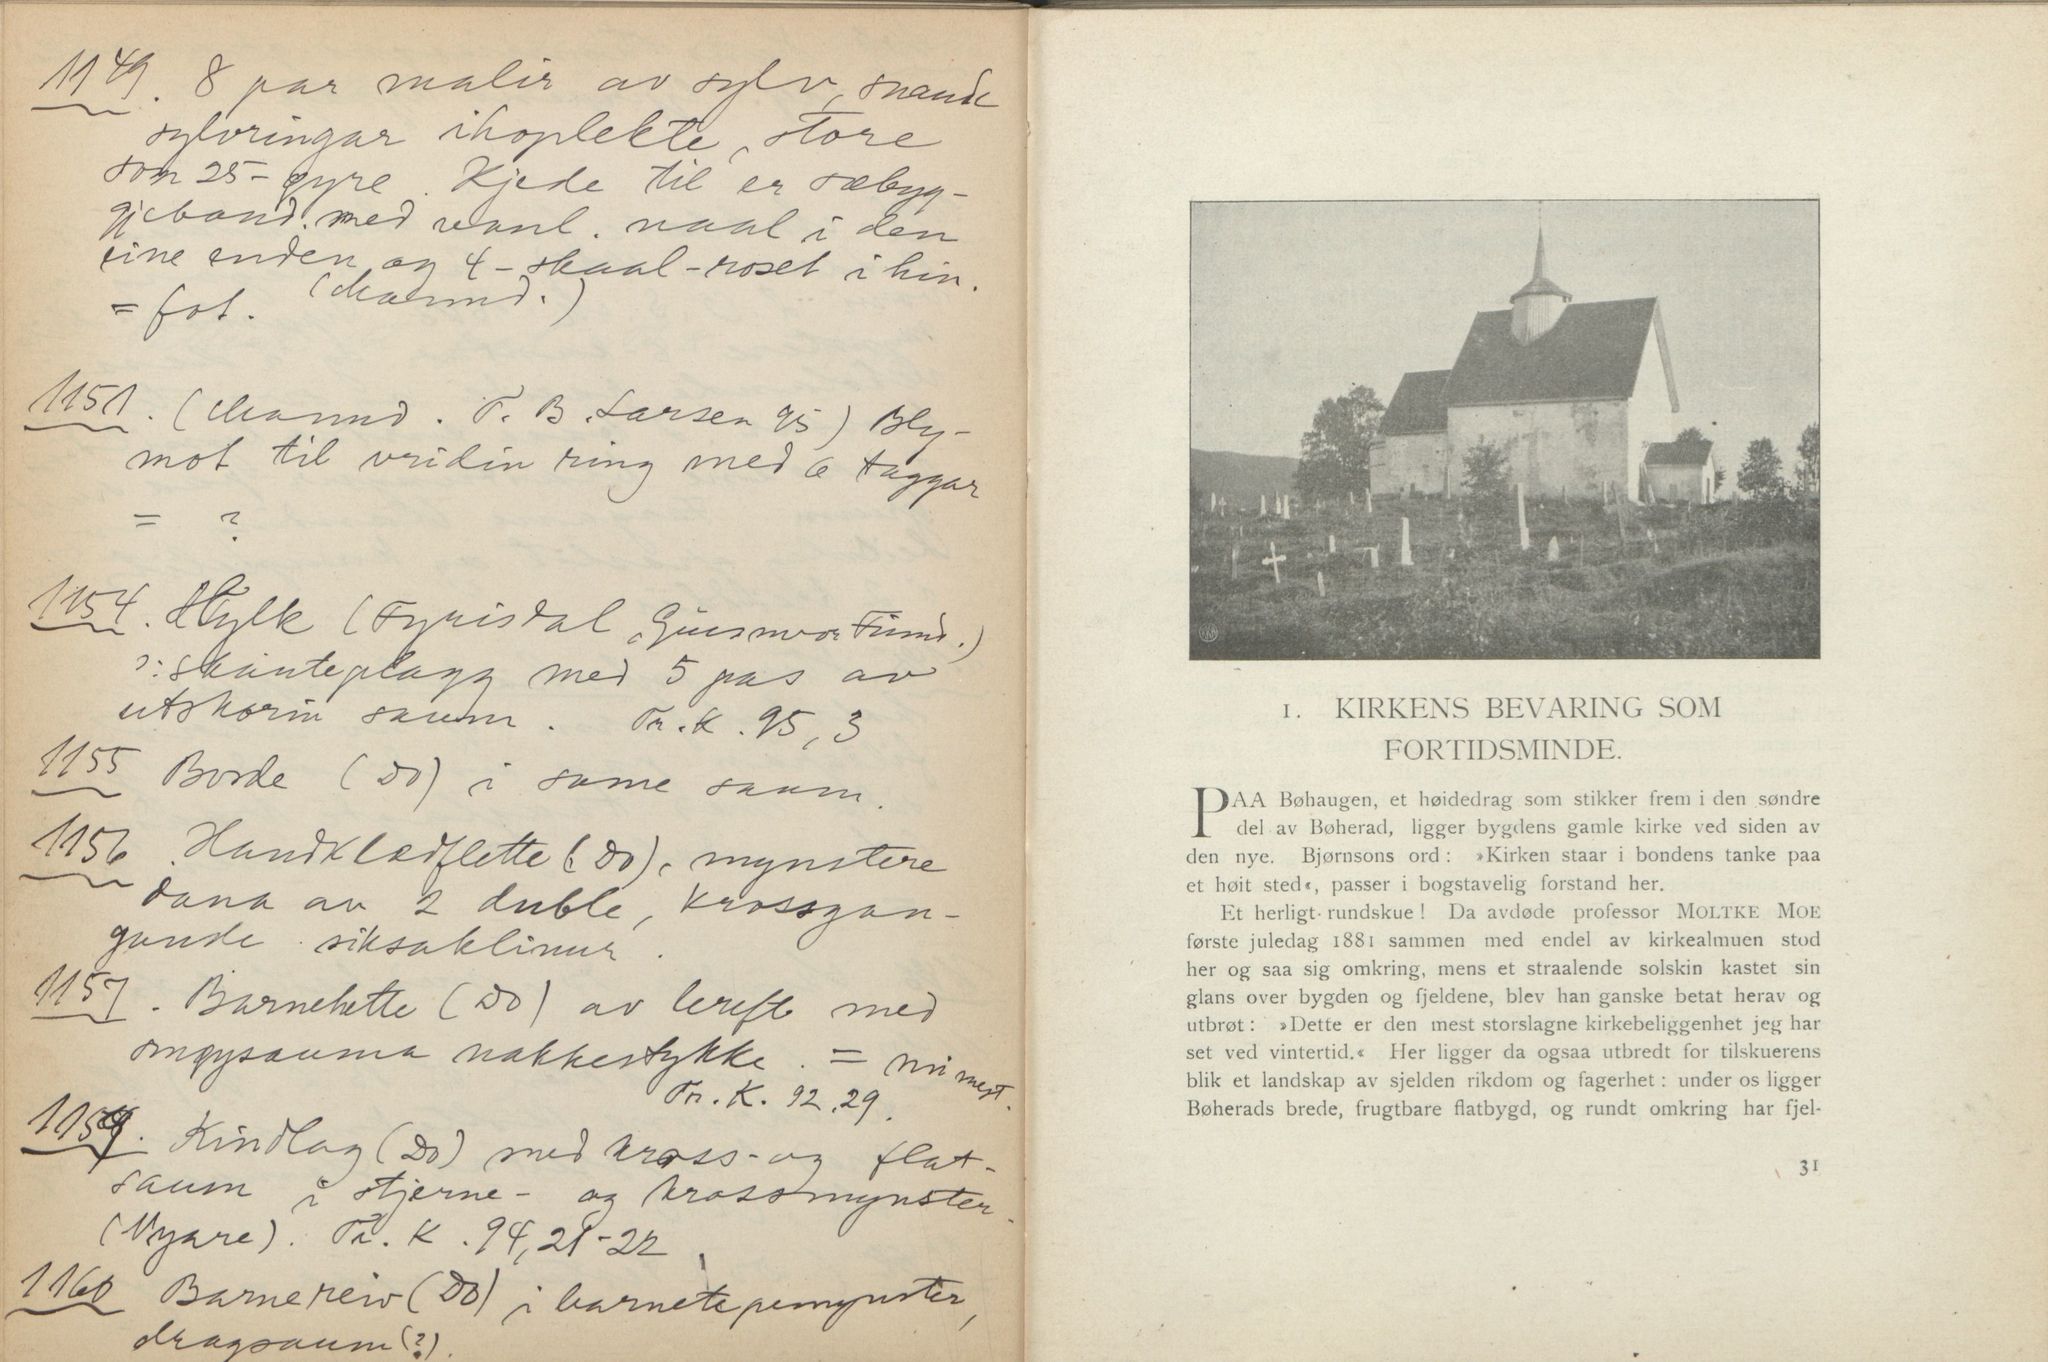 1149. 8 par malir av sylv, smaae
sylvringar ihoplekte, store
som 25-øyre. Kjede til er sæbyg-
gjeband. med vanl. naal i den
eine enden og 4-skaal-roset i hin.
= fot. (Maurud.)
1151. (Maurud. T. B. Larsen 95) Bly-
mot til vridin ring med 6 taggar
= ?
1154. Hylk (Fyrisdal, Finnd.)
ɔ: skauteplagg med 5 pas av
utskorin saum. Tr. K. 95, 3
1155 Borde (Do) i same saum.
1156. Handklædflette (Do), mynstere
dana av 2 duble, krossgan-
gande siksaklinur.
1157. Barnehette (Do) av lereft med
smøysauma nakkestykke. = mi mest.
Tr. K. 92, 29.
1159. Kindlag (Do) med kross- og flat-
saum i stjerne- og krossmynster
(Nyare). Tr. K. 94, 21-22
1160 Barnereiv (Do) i barnetepemynster,
dragsaum (?).
1. KIRKENS BEVARING SOM
FORTIDSMINDE.
PAA Bøhaugen, et høidedrag som stikker frem i den søndre
del av Bøherad, ligger bygdens gamle kirke ved siden av
den nye. Bjørnsons ord: »Kirken staar i bondens tanke paa
et høit sted«, passer i bogstavelig forstand her.
Et herligt rundskue! Da avdøde professor MOLTKE MOE
første juledag 1881 sammen med endel av kirkealmuen stod
her og saa sig omkring, mens et straalende solskin kastet sin
glans over bygden og fjeldene, blev han ganske betat herav og
utbrøt: »Dette er den mest storslagne kirkebeliggenhet jeg har
set ved vintertid.« Her ligger da ogsaa utbredt for tilskuerens
blik et landskap av sjelden rikdom og fagerhet: under os ligger
Bøherads brede, frugtbare flatbygd, og rundt omkring har fjel-
31